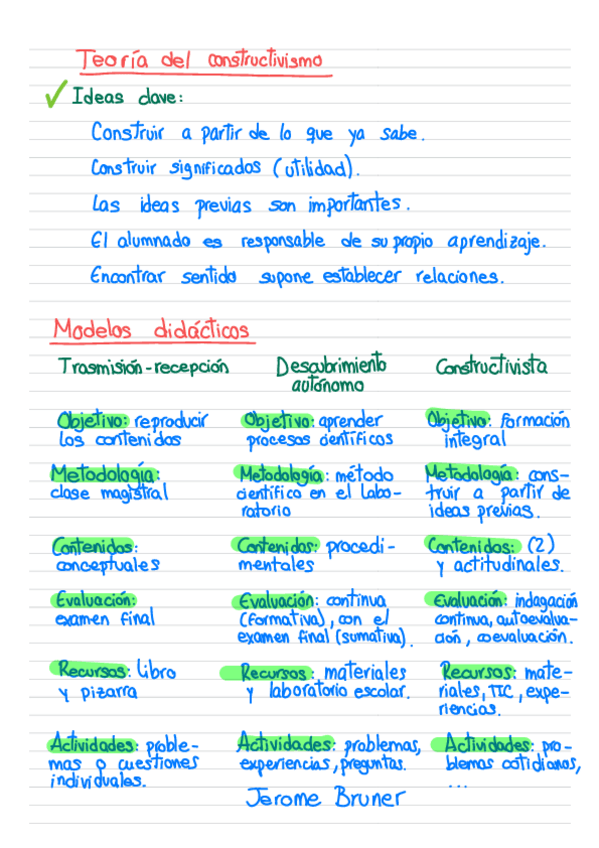 Teoría del constructivismo
Ideas clave:
Construir a partir de lo que ya sabe.
Construir significados (utilidad).
Las ideas previas son importantes.
El alumnado es responsable de su propio aprendizaje.
Encontrar sentido supone establecer relaciones.
Modelos didácticos
Trasmisión-recepción
Objetivo: reproducir
los contenidos
Metodología:
clase magistral
Contenidos:
conceptuales
Evaluación:
examen final
Recursos: libro
y pizarra
Actividades: proble-
mas o cuestiones
individuales.
Descubrimiento
autónomo
Objetivo: aprender
procesos científicos
Metodología: método
científico en el labo-
ratorio
Contenidos: procedi-
mentales
Evaluación: continua
(formativa), con el
examen final (sumativa).
Recursos: materiales
y laboratorio escolar.
Actividades: problemas,
experiencias, preguntas.
Jerome Bruner
Constructivista
Objetivo: Formación
integral
Metodología: cons-
truir a partir de
ideas previas.
Contenidos: (2)
y actitudinales.
Evaluación: indagación
continua, autoevalua-
ción, coevaluación.
Recursos: mate-
riales, TIC, expe-
riencias.
Actividades: pro-
blemas cotidianos,
...